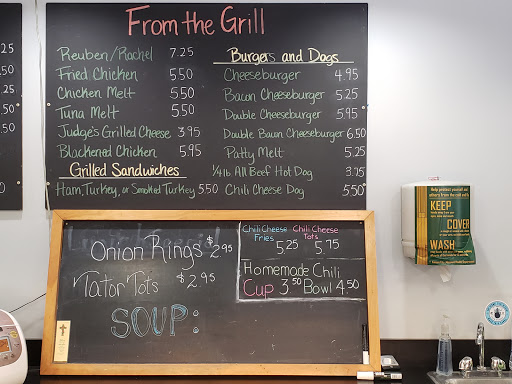 From the Grill
Reuben/Rachel 7.25
Fried Chicken 5.50
Chicken Melt 5.50
Tuna Melt 5.50
Judge's Grilled Cheese 3.95
Blackened Chicken 5.95
Grilled Sandwiches
Ham, Turkey, or Smoked Turkey 5.50
Burgers and Dogs
Cheeseburger 4.95
Bacon Cheeseburger 5.25
Double Cheeseburger 5.95
Double Bacon Cheeseburger 6.50
Patty Melt 5.25
1/4 lb All Beef Hot Dog 3.75
Chili Cheese Dog 5.50
Onion Rings $2.95
Tator Tots $2.95
SOUP:
Chili Cheese Fries 5.25
Chili Cheese Tots 5.75
Homemade Chili
Cup 3.50 Bowl 4.50
KEEP
COVER
WASH